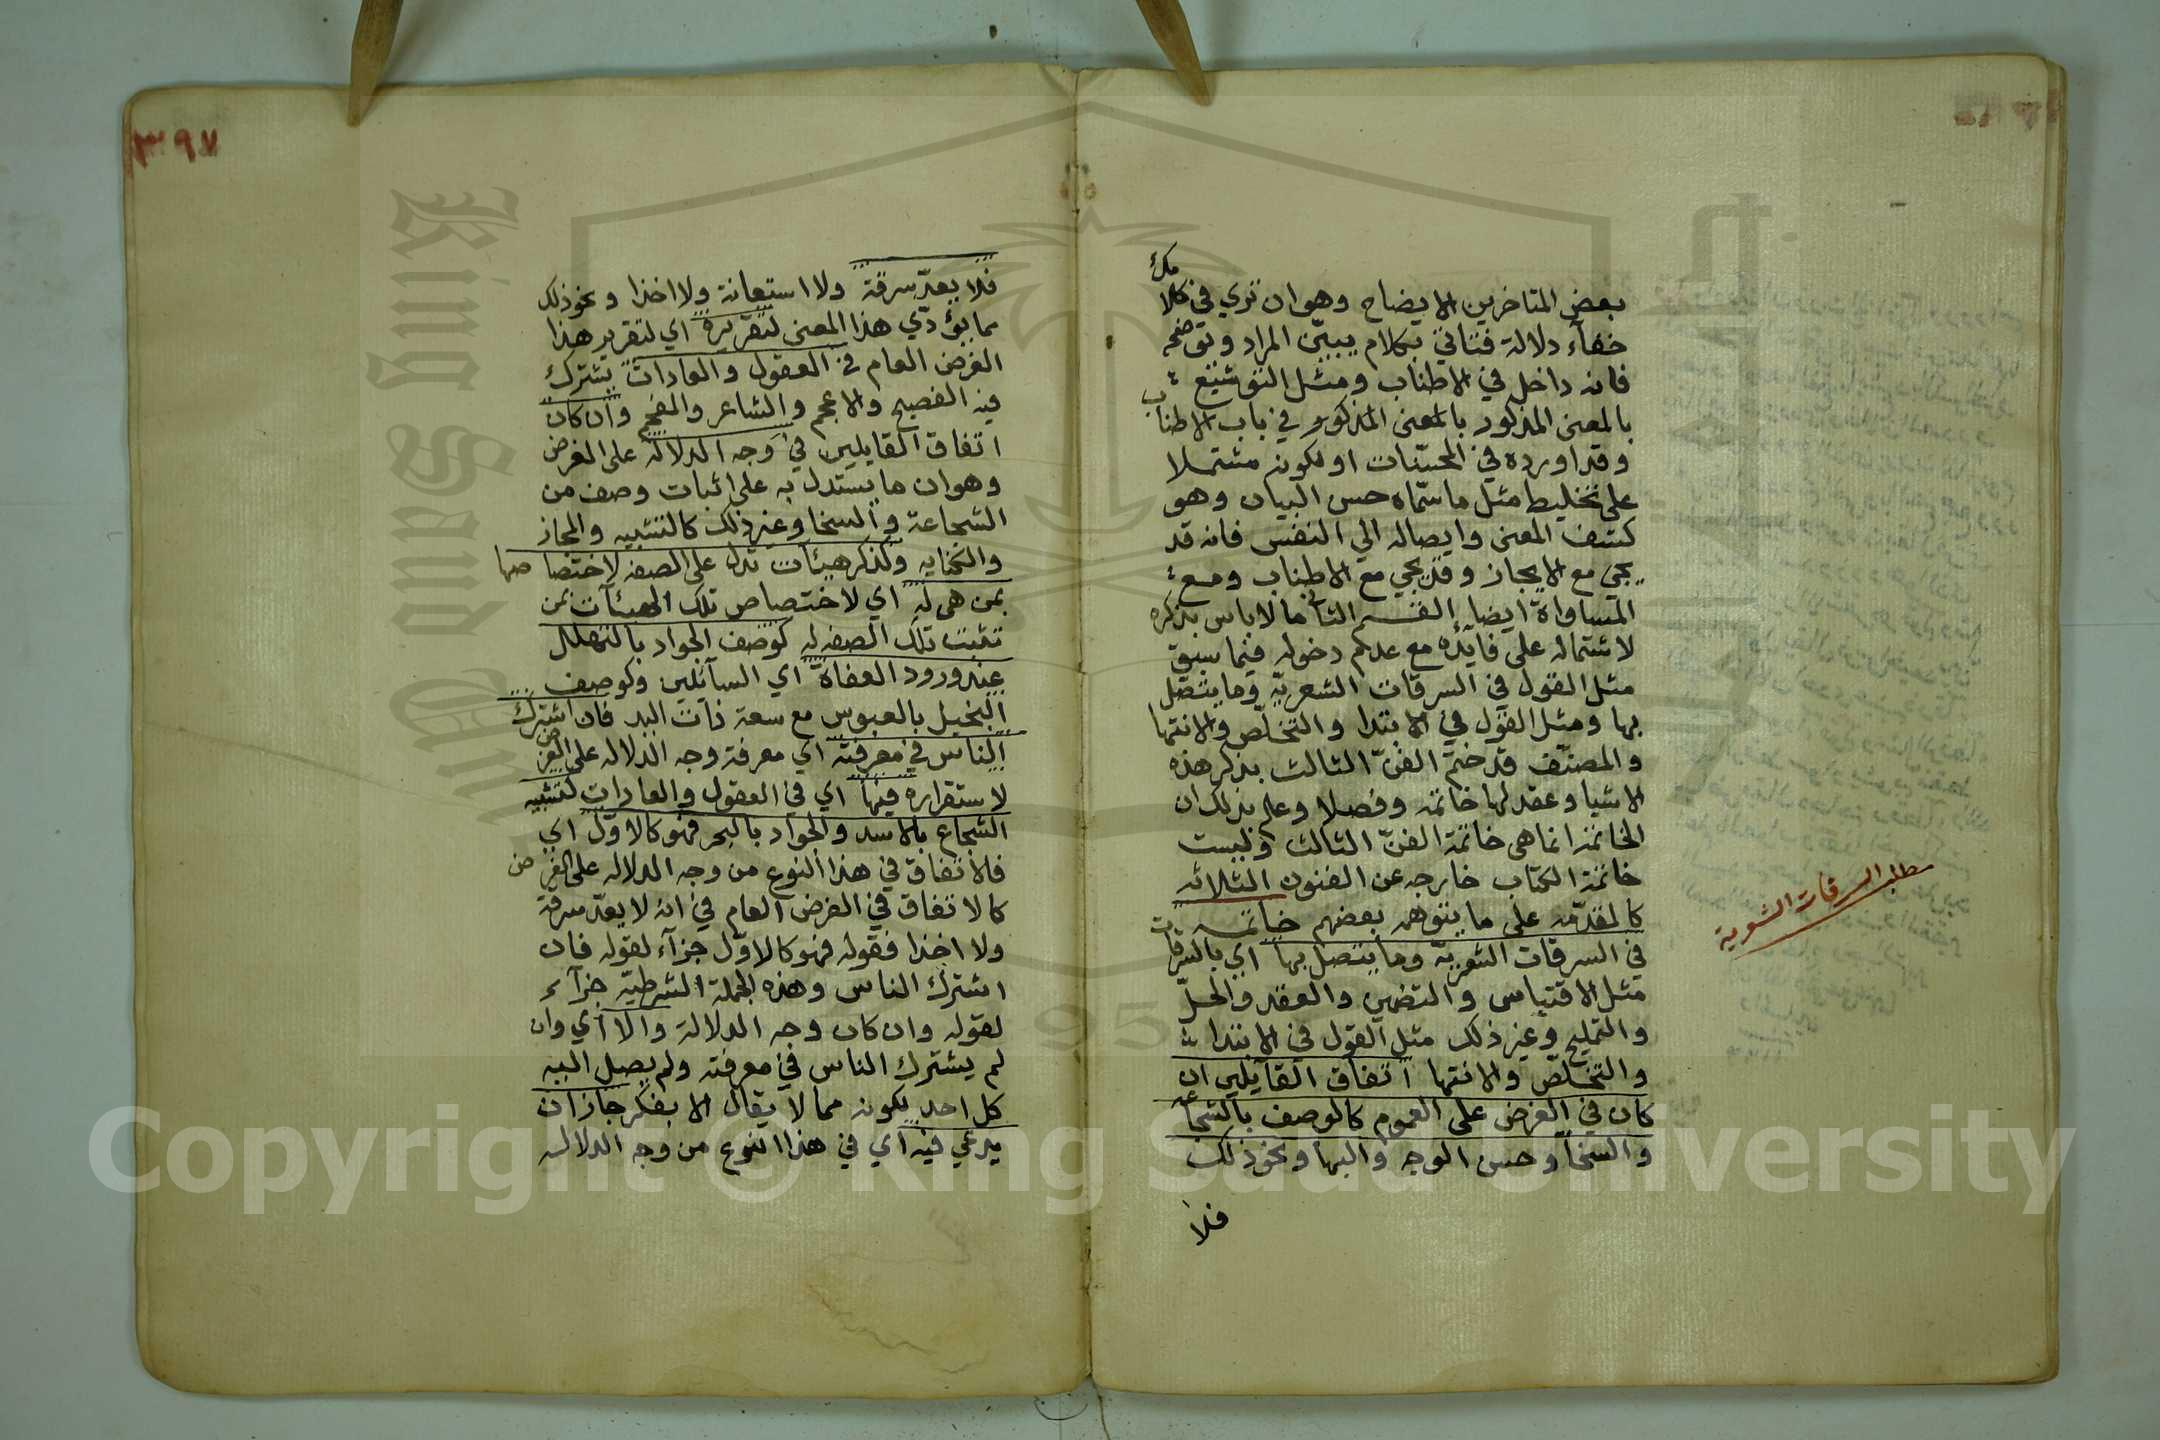 بعض المتاخرين الايضاح وهو ان تري في كلامك
خفآء دلالة فتاتي بكلام يبيّن المراد وتوضحه
فانه داخل في الاطناب ومثل التوشيع
بالمعنى المذكور بالمعنى المذكور في باب الاطناب
وقد اورده في المحسّنات او لكونه مشتملا
على تخليط مثل ما سمّاه حسن البيان وهو
كشف المعنى وايصاله الي النفس فانه قد
يجي مع الايجاز وقد يجي مع الاطناب ومع
المساواة ايضا القسم الثاني ما لا باس بذكره
لاشتماله على فايده مع عدم دخوله فيما سبق
مثل القول في السرقات الشعريّة وما يتصل
بها ومثل القول في الابتدا والتخلّص والانتها
والمصنّف قد ختم الفنّ الثالث بذكر هذه
الاشيا وعقد لها خاتمه وفصلا وعلم بذلك ان
الخاتمة انما هي خاتمة الفنّ الثالث وليست
خاتمة الكتاب خارجه عن الفنون الثلاثه
كالمقدّمه على ما يتوهمه بعضهم خاتمه
في السرقات الشعريّة وما يتصل بها اي بالسرقات
مثل الاقتباس والتضمين والعقد والحلّ
والتمليح وغير ذلك مثل القول في الابتدا
والتخلّص والانتها اتفاق القآيلين ان
كان في الغرض على العموم كالوصف بالشجاعه
والسخا وحسن الوجه والبها ونحو ذلك
فلا
مطلب السرقات الشعرية
٣٩٧
فلا يعدّ سرقة ولا استعانة ولا اخذا ونحو ذلك
مما يؤدّي هذا المعنى لتقرّيره اي لتقرير هذا
الغرض العام في العقول والعادات يشترك
فيه الفصيح والاعجم والشاعر والمفحم وان كان
اتفاق القايلين في وجه الدلالة على الغرض
وهو ان ما يستدل به على اثبات وصف من
الشجاعة والسخا وغير ذلك كالتشبيه والمجاز
والكنايه وكذكر هيئات تدل على الصفه لاختصاصها
بمن هي له اي لاختصاص تلك الهيئآت بمن
تثبت تلك الصفه له كوصف الجواد بالتهلل
عند ورود العفاة اي السآئلين وكوصف
البخيل بالعبوس مع سعة ذات اليد فان اشترك
الناس في معرفته اي معرفة وجه الدلاله على الغرض
لاستقراره فيها اي في العقول والعادات كتشبيه
الشجاع بالاسد والجواد بالبحر فهو كالاوّل اي
فالاتفاق في هذا النوع من وجه الدلاله على الغرض
كالاتفاق في الغرض العام في انه لا يعدّ سرقة
ولا اخذا فقوله فهو كالاوّل جزآء لقوله فان
اشترك الناس وهذه الجملة الشرطيّة جزآء
لقوله وان كان وجه الدلالة والا اي وان
لم يشترك الناس في معرفته ولم يصل اليه
كل احد لكونه مما لا يقال الا بفكر جاز ان
يدعي فيه اي في هذا النوع من وجه الدلاله
King Saud University
1957
Copyright © King Saud University